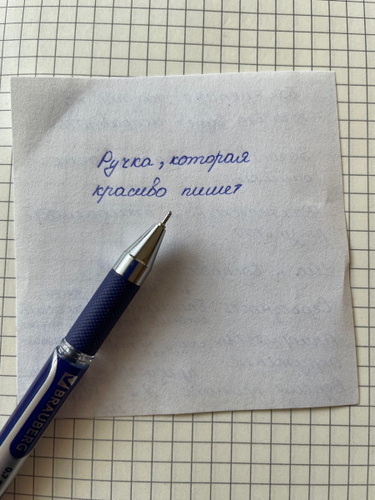 Ручка, которая
красиво пишет
BRAUBERG
0.7